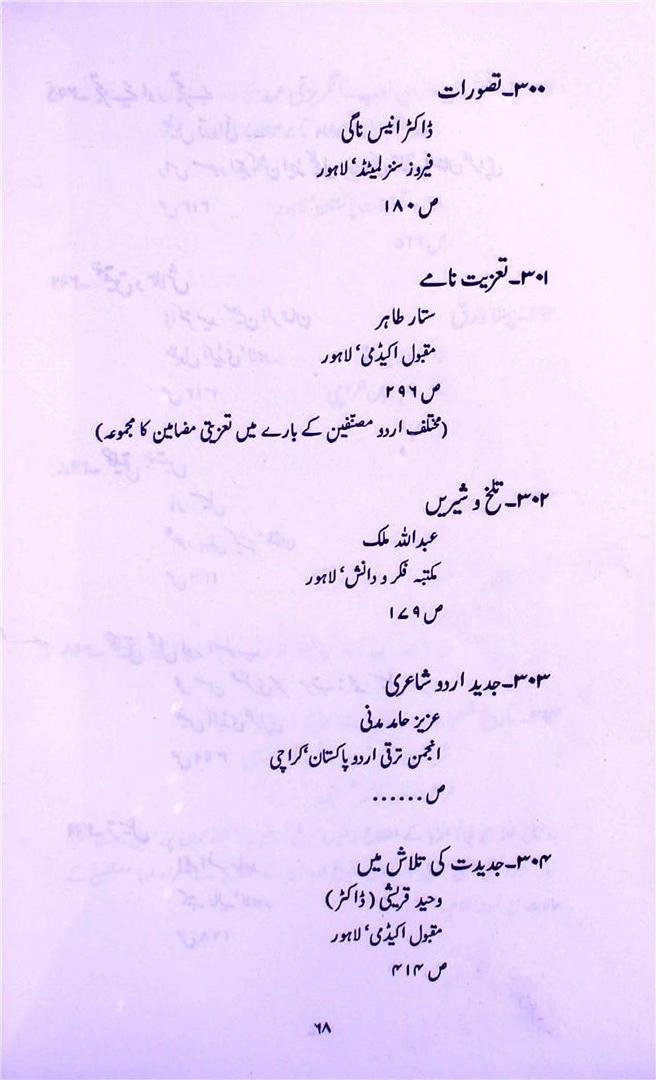 ۳۰۰۔ تصورات
ڈاکٹر انیس ناگی
فیروز سنز لمیٹڈ، لاہور
ص ۱۸۰
۳۰۱۔ تعزیت نامے
ستار طاہر
مقبول اکیڈمی، لاہور
ص ۲۹۶
(مختلف اردو مصنّفین کے بارے میں تعزیتی مضامین کا مجموعہ)
۳۰۲۔ تلخ و شیریں
عبداللہ ملک
مکتبہ فکر و دانش، لاہور
ص ۱۷۹
۳۰۳۔ جدید اردو شاعری
عزیز حامد مدنی
انجمن ترقی اردو پاکستان، کراچی
ص ......
۳۰۴۔ جدیدت کی تلاش میں
وحید قریشی (ڈاکٹر)
مقبول اکیڈمی، لاہور
ص ۴۱۴
۶۸